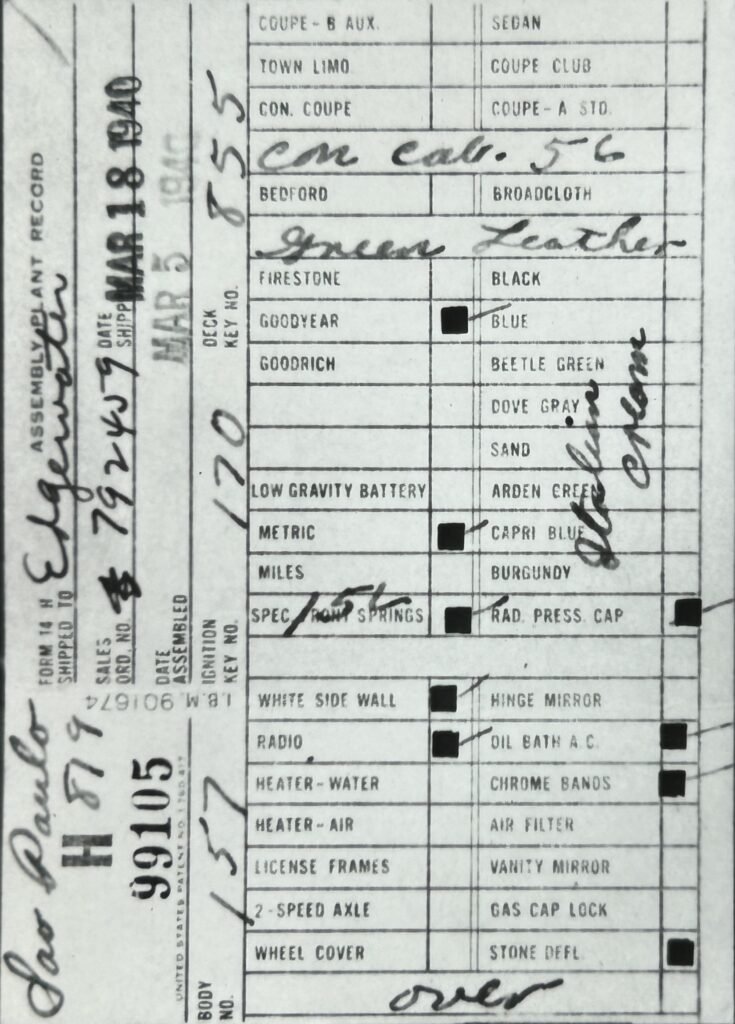 Sao Paulo
H 879
H
99105
UNITED STATES PATENT NO. 1,780,417
I.B.M. 901674
FORM 14 H ASSEMBLY PLANT RECORD
SHIPPED TO Edgewater
SALES ORD. NO. 792459
DATE SHIPP MAR 18 1940
DATE ASSEMBLED MAR 5 1940
BODY NO. 157
IGNITION KEY NO. 170
DECK KEY NO. 855
COUPE - B AUX. SEDAN
TOWN LIMO COUPE CLUB
CON. COUPE COUPE - A STD.
Con cab. 56
BEDFORD BROADCLOTH
Green Leather
FIRESTONE BLACK
GOODYEAR BLUE
GOODRICH BEETLE GREEN
DOVE GRAY
SAND
LOW GRAVITY BATTERY ARDEN GREEN
METRIC CAPRI BLUE
MILES BURGUNDY
Italian
cream
SPEC. FRONT SPRINGS RAD. PRESS. CAP
WHITE SIDE WALL HINGE MIRROR
RADIO OIL BATH A.C.
HEATER - WATER CHROME BANDS
HEATER - AIR AIR FILTER
LICENSE FRAMES VANITY MIRROR
2 - SPEED AXLE GAS CAP LOCK
WHEEL COVER STONE DEFL.
over